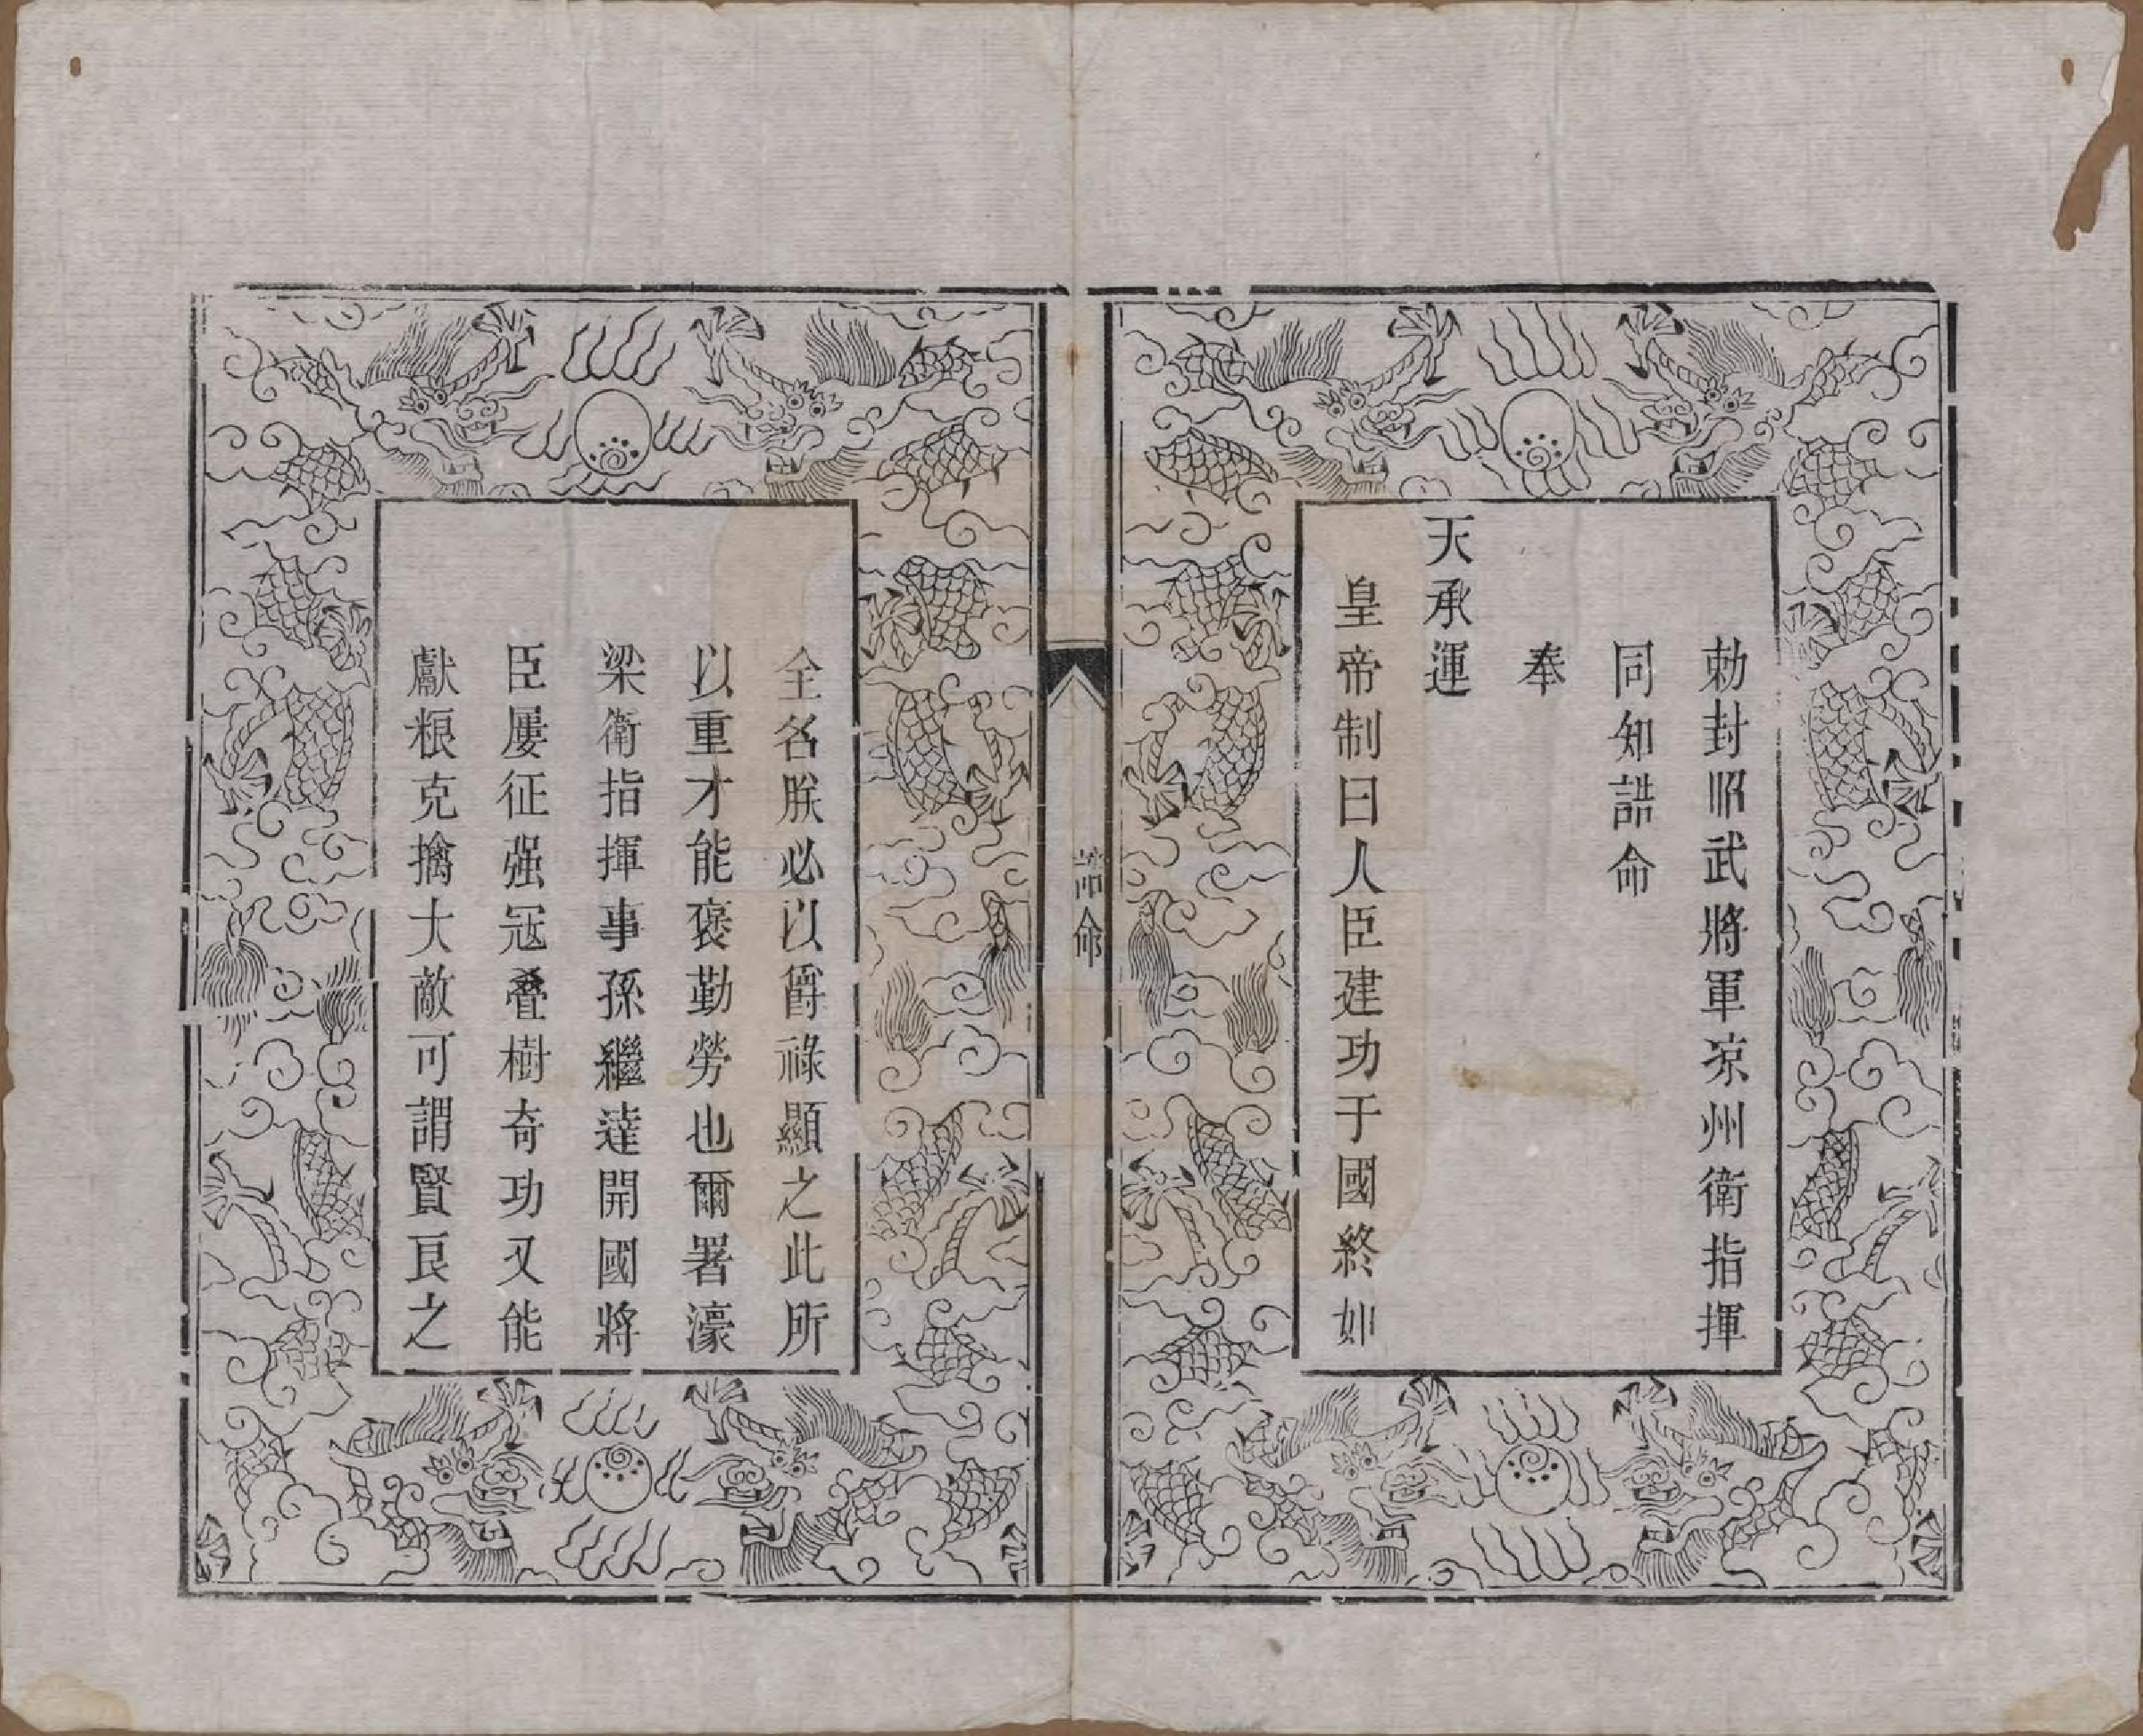 勅封昭武將軍凉州衛指揮
同知誥命
奉
天承運
皇帝制曰人臣建功于國終始
誥命
全名朕必以爵祿顯之此所
以重才能褒勤勞也爾署濠
梁衛指揮事孫繼達開國將
臣屢征强冦叠樹奇功又能
獻粮克擒大敵可謂賢良之